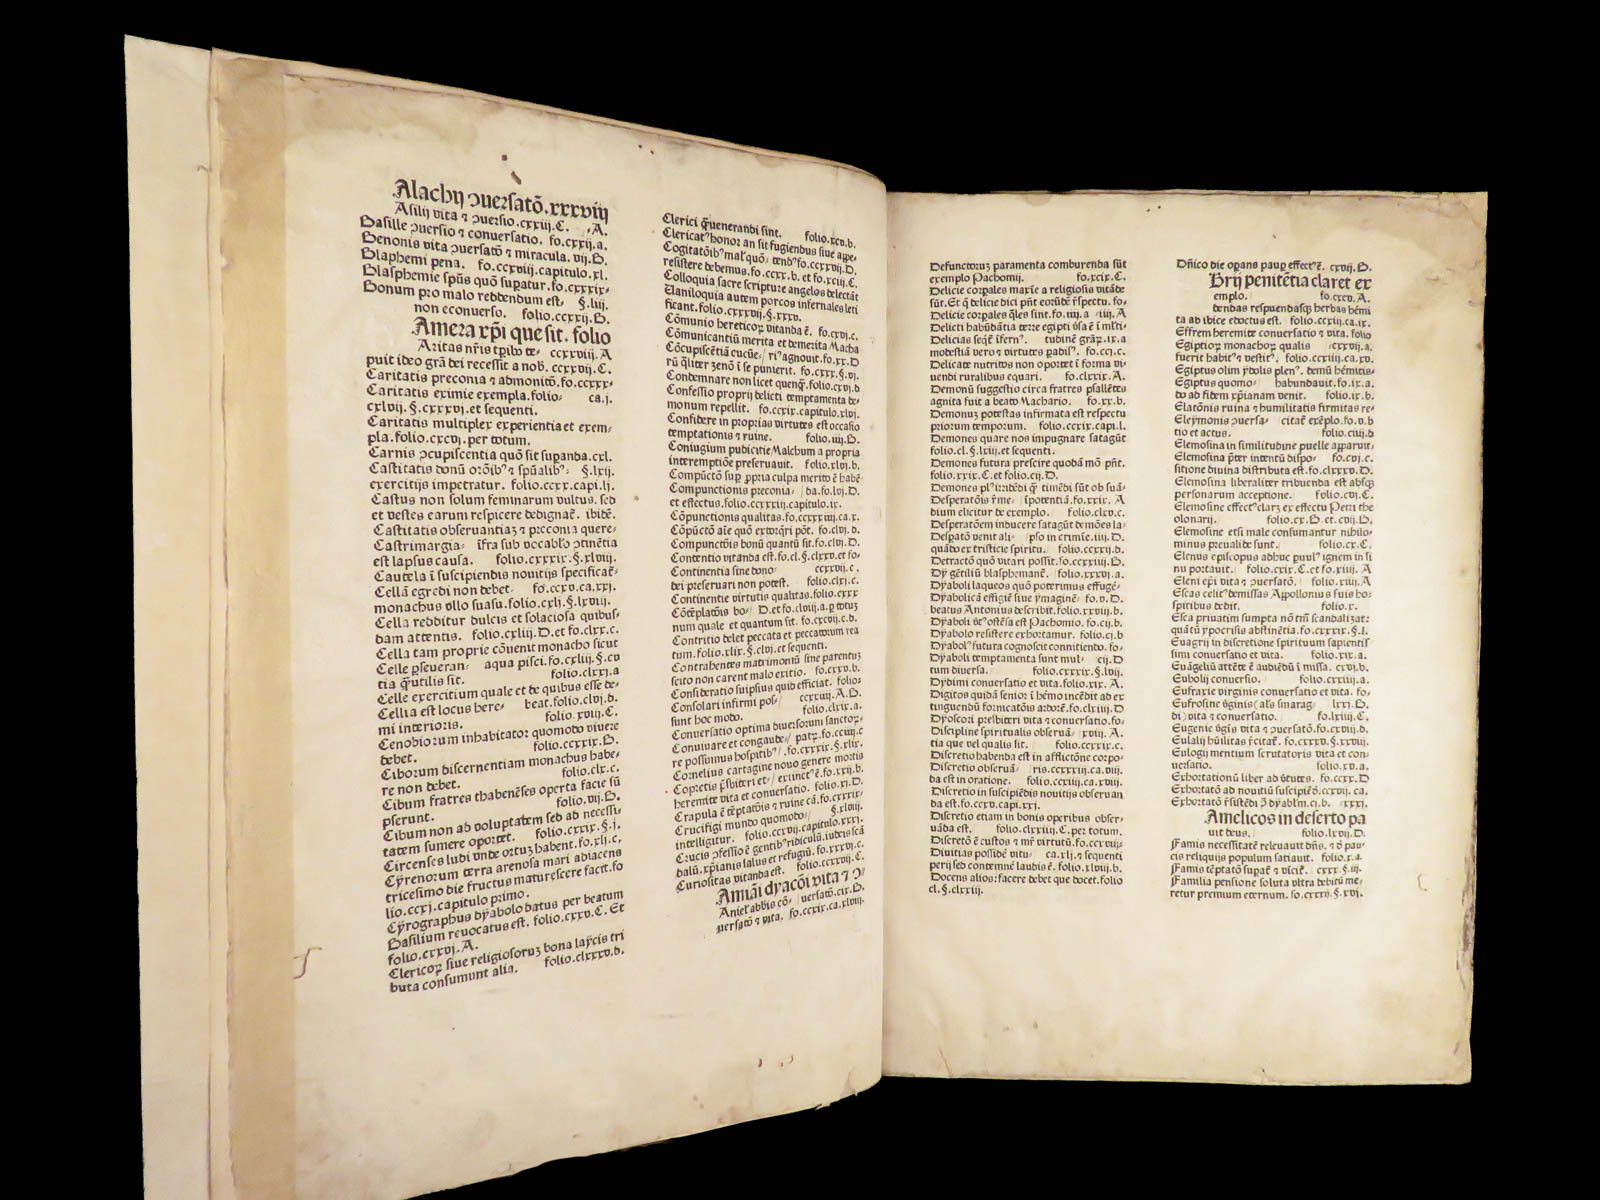 Alachij ɔuersatō.xxxviij
Asilij vita ⁊ ɔuersio.cxxiij.C. .A.
Basille ɔuersio ⁊ conuersatio. fo.cxxij.a.
Benonis vita ɔuersatō ⁊ miracula. vij.B.
Blaphemi pena. fo.ccxviij.capitulo.xl.
Blasphemie spūs quō supatur. fo.cxxxix-
Bonum pro malo reddendum est- §.liij.
non econuerso. folio.ccxxij.B.
Amera xp̄i que sit. folio
Aritas nr̄is tpibo te- ccxxviij.A
puit ideo grā dei recessit a nob. ccxxvij.C.
Caritatis preconia ⁊ admonitō.fo.ccxxx-
Caritatis eximie exempla.folio- ca.j.
cxlvij.§.cxxxvj.et sequenti.
Caritatis multiplex experientia et exem-
pla.folio.cxcvj.per totum.
Carnis ɔcupiscentia quō sit supanda.cxl.
Castitatis donū orōib⁹ ⁊ spūalib⁹- §.lxij.
exercitijs impetratur. folio.ccxx.capi.lj.
Castus non solum feminarum vultus. sed
et vestes earum respicere dedignat̄. ibidē.
Castitatis obseruantiaꝫ ⁊ preconia quere-
Castrimargia- īfra sub vocablo ɔtinētia
est lapsus causa. folio.cxxxix.§.xlviij.
Cautela ī suscipiendis nouitijs specificat̄-
Cellā egredi non debet- fo.ccxv.ca.xxj.
monachus vllo suasu.folio.cxlj.§.lxviij.
Cella redditur dulcis et solaciosa quibus-
dam attentis. folio.cxliij.D.et fo.clxx.c.
Cella tam proprie cōuenit monacho sicut
Celle ꝑseueran- aqua pisci. fo.cxliij.§.cv
tia q̄utilis sit. folio.clxxj.a
Celle exercitium quale et de quibus esse de-
Cellia est locus here- beat.folio.clvj.d.
mi interioris. folio.xviij.C.
Cenobiorum inhabitator quomodo viuere
debet. folio.ccxxix.B.
Ciborum discernentiam monachus habe-
re non debet. folio.clx.c.
Cibum fratres thabenēses operta facie sū
pserunt. folio.vij.B.
Cibum non ad voluptatem sed ad necessi-
tatem sumere oportet. folio.cxxix.§.j.
Circenses ludi vnde ortuꝫ habent.fo.xlj.c,
Cyrenorum terra arenosa mari adiacens
tricesimo die fructus maturescere facit.fo
lio.ccxj.capitulo primo.
Cyrographus dyabolo datus per beatum
Basilium reuocatus est. folio.cxxv.C. Et
folio.cxxvj.A.
Clericoꝝ siue religiosoruꝫ bona laycis tri
buta consumunt alia. folio.clxxxv.d.
Clerici q̄uenerandi sint. folio.xcv.b.
Clericat⁹ honor an sit fugiendus siue appe-
Cogitatōib⁹ mal⁹ quō- tend⁹ fo.ccxxvij.D.
resistere debemus.fo.ccxx.b. et fo.xcij.C.
Colloquia sacre scripture angelos delectāt
Uaniloquia autem porcos infernales leti
ficant.fo.cxxxvij.§.xxxv.
Cōmunio hereticoꝝ vitanda ē. fo.cxvj.c.
Cōmunicantiū merita et demerita Macha
Cōcupiscētiā cucūe-/ ri⁹ agnouit.fo.xx.D
rū q̄liter zenō ī se punierit. fo.cxxx.§.vj.
Condemnare non licet quenq̄.folio.cvj.d
Confessio proprij delicti temptamenta de-
monum repellit. fo.ccxix.capitulo.xlvj.
Confidere in proprias virtutes est occasio
temptationis ⁊ ruine. folio.iiij.B.
Coniugium pudicitie Malchum a propria
interemptiōe preseruauit. folio.xlvj.b.
Compūctō sup ꝓpria culpa merito ē habē-
Compunctionis preconia-/ da.fo.lvj.D.
et effectus.folio.ccxxxiij.capitulo.ix.
Cōpunctionis qualitas. fo.ccxxxiiij.ca.x.
Cōpūctō aīe quō extorq̄ri pōt. fo.clvj.d.
Compunctōis bonū quantū sit.fo.cvj.D.
Contentio vitanda est.fo.cl.§.clxxv.et fo-
Continentia sine dono- ccxxvij.c.
dei preseruari non potest. folio.clxj.c.
Continentie virtutis qualitas.folio.cxxx
Cōtēplatōis bo-/ D.et fo.clviij.a. ꝑ totuꝫ
num quale et quantum sit. fo.cxvij.c.d.
Contritio delet peccata et peccatorum rea
tum.folio.xlix.§.clvj.et sequenti.
Contrahentes matrimoniū sine parentuꝫ
scito non carent malo exitio. fo.cxxv.b.
Consideratio suipsius quid efficiat. folio-
Consolari infirmi pos-/ ccxxvij.A.B.
sunt hoc modo. folio.clxix.a.
Conuersatio optima diuersorum sanctoꝝ-
Conuiuare et congaude-/ patꝝ.fo.ccxiij.c
re possumus hospitib⁹/ .fo.cxxxix.§.xlix.
Cornelius cartagine nouo genere mortis
Copretis p̄sbiteri et-/ extinct⁹ ē.fo.xxij.b.
heremite vita et conuersatio. folio.xj.D.
Crapula ē tēptatōis ⁊ ruine cā.fo.cxxxix-
Crucifigi mundo quomodo-/ §.xlviij.
intelligitur. folio.ccxvij.capitulo.xxxj.
Crucis ꝓfessio ē gentib⁹ ridiculū.iudeis scā
dalū.xp̄ianis salus et refugiū.fo.xxxvj.c.
Curiositas vitanda est. folio.ccxxvij.C.
Amiāi dyacōi vita ⁊ ɔ-
Aniel abbis cō- / uersatō.cix.B.
uersatō ⁊ vita. fo.ccxix.ca.xlviij.
Defunctoruꝫ paramenta comburenda sūt
exemplo Pachomij. fo.xcix.C.
Delicie corpales maxīe a religiosis vitāde
sūt.Et q̄ delicie dici pn̄t eorūdē r̄spectu. fo-
Delicie corpales q̄les sint.fo.iiij.a /iiij. A
Delicti habūdātia terre egipti v̄sa ē ī mlti-
Delicias seq̄t̄ īfern⁹. / tudinē grāꝝ.ix.a
modestiā vero ⁊ virtutes padis⁹. fo.ccj.c.
Delicate nutritos non oportet ī forma vi-
uendi ruralibus equari. fo.clxxix.A.
Demonū suggestio circa fratres psallētes
agnita fuit a beato Machario. fo.xx.b.
Demonuꝫ potestas infirmata est respectu
priorum temporum. folio.ccxix.capi.l.
Demones quare nos impugnare satagūt
folio.cl.§.lxiij.et sequenti.
Demones futura prescire quodā mō pn̄t.
folio.xxix.C.et folio.cij.D.
Demones pl⁹ iridēdi q̄ timēdi sūt ob suā-
Desperatōis r̄me- / īpotentiā.fo.xxix. A
dium elicitur de exemplo. folio.clxv.c.
Desperatōem inducere satagūt demōes la-
Despatō venit ali- / pso in crimīe.iiij.D.
quādo ex tristicie spiritu. folio.ccxxij.d.
Detractō quō vitari possit.fo.ccxxiij.D.
Dij gētiliū blasphemant̄. folio.xxxvj.a.
Dyaboli laqueos quō poterimus effugē-
Dyabolicā effigiē siue ymaginē- / fo.v.D.
beatus Antonius describit.folio.xxviij.b.
Dyaboli v̄sut⁹ ostēsa est Pachomio. fo.cij.b.
Dyabolo resistere exhortamur. folio.cj.b
Dyabol⁹ futura cognoscit connitiendo. fo-
Dyaboli temptamenta sunt mul- / cij.D
tum diuersa. folio.cxxxix.§.lvij.
Dydimi conuersatio et vita.folio.xix. A.
Digitos quidā senior ī hēmo incēdit ad ex
tinguendū fornicatōis ardorē.fo.clxiij.D
Dyoscori presbiteri vita ⁊ conuersatio.fo-
Discipline spiritualis obseruā- / xviij. A.
tia que vel qualis sit. folio.ccxxix.c.
Discretio habenda est in afflictiōne corpo-
Discretio obseruā- / ris.ccxxxiij.ca.viij.
da est in oratione. folio.ccxiij.ca.xviij.
Discretio in suscipiēdis nouitijs obseruan
da est.fo.ccxv.capi.xxj.
Discretio etiam in bonis operibus obser-
uāda est. folio.clxxiiij.C.per totum.
Discretō ē custos ⁊ mr̄ virtutū.fo.ccxvij.
Diuitias possidē vitu- / ca.xlj.⁊ sequenti
perij sed contemnē laudis ē. folio.xlviij.b.
Docens alios: facere debet que docet.folio
cl. §.clxxiij.
Dn̄ico die oꝑans paup effect⁹ ē. cxvij.B.
Brij penitētia claret ex
emplo. fo.xcv.A.
dendas respuendasq̄ herbas hēmi
ta ab ibice edoctus est. folio.ccxiij.ca.ix.
Effrem heremite conuersatio ⁊ vita. folio
Egiptioꝝ monachoꝝ qualis / cxxvij.a.
fuerit habit⁹ ⁊ vestit⁹. folio.ccxiiij.ca.xv.
Egiptus olim ydolis plen⁹. demū hēmitis-
Egiptus quomo- / habundauit.fo.ix.a.
do ad fidem xp̄ianam venit. folio.ix.b.
Elatōnis ruina ⁊ humilitatis firmitas re-
Eleymonis ɔuersa- / citat̄ exēplo.fo.v.b
tio et actus. folio.ciij.d
Elemosina in similitudine puelle apparuit-
Elemosina p̄ter intentū dispo- / fo.cvj.c.
sitione diuina distributa est.fo.clxxxv.D.
Elemosina liberaliter tribuenda est absqꝫ
personarum acceptione. folio.cvj.C.
Elemosine effect⁹ clarꝫ ex effectu Petri the
olonarij. folio.cx.B. et.cvij.B.
Elemosine etsi male consumantur nihilo-
minus preualide sunt. folio.cx.C.
Elenus episcopus adhuc puul⁹ ignem in si
nu portauit. folio.cxix.C. et fo.xiij. A
Eleni epī vita ⁊ ɔuersatō. folio.xiij.A
Escas celit⁹ demissas Appollonius suis ho-
spitibus dedit. folio.x.
Esca priuatim sumpta nō tm̄ scandalizat:
quātū ypocrisis abstinētia.fo.cxxxix.§.l.
Euagrij in discretione spirituum sapientis
simi conuersatio et vita. folio.xix.a.
Euāgeliū attēte ē audiēdū ī missa. cxvj.b.
Eubolij conuersio. folio.cxxiij.a.
Eufraxie virginis conuersatio et vita. fo-
Eufrosine v̄ginis (al's smarag- / lxxj.B.
di) vita ⁊ conuersatio. fo.lxiij.C.
Eugenie v̄gīs vita ⁊ ɔuersatō.fo.cxvij.d.
Eulalij hūilitas r̄citat̄. fo.cxxxv.§.xxviij.
Eulogij mentium scrutatoris vita et con-
uersatio. folio.xv.a.
Exhortationū liber ad v̄tutes. fo.ccxx.D
Exhortatō ad nouitiū suscipiēdū.ccxvij. ca.
Exhortatō r̄sistēdi ɔ̄ dyablm.cj.b. / xxxj.
Amelicos in deserto pa
uit deus. folio.lxvij.D.
Famis necessitatē releuauit dn̄s. ⁊ ō pau-
cis reliquijs populum satiauit. folio.x.a.
Famis tēptatō supat̄ ⁊ vīcit̄. cxxx.§.iij.
Familia pensione soluta vltra debitū me-
retur premium eternum. fo.cxxxij.§.xvj.